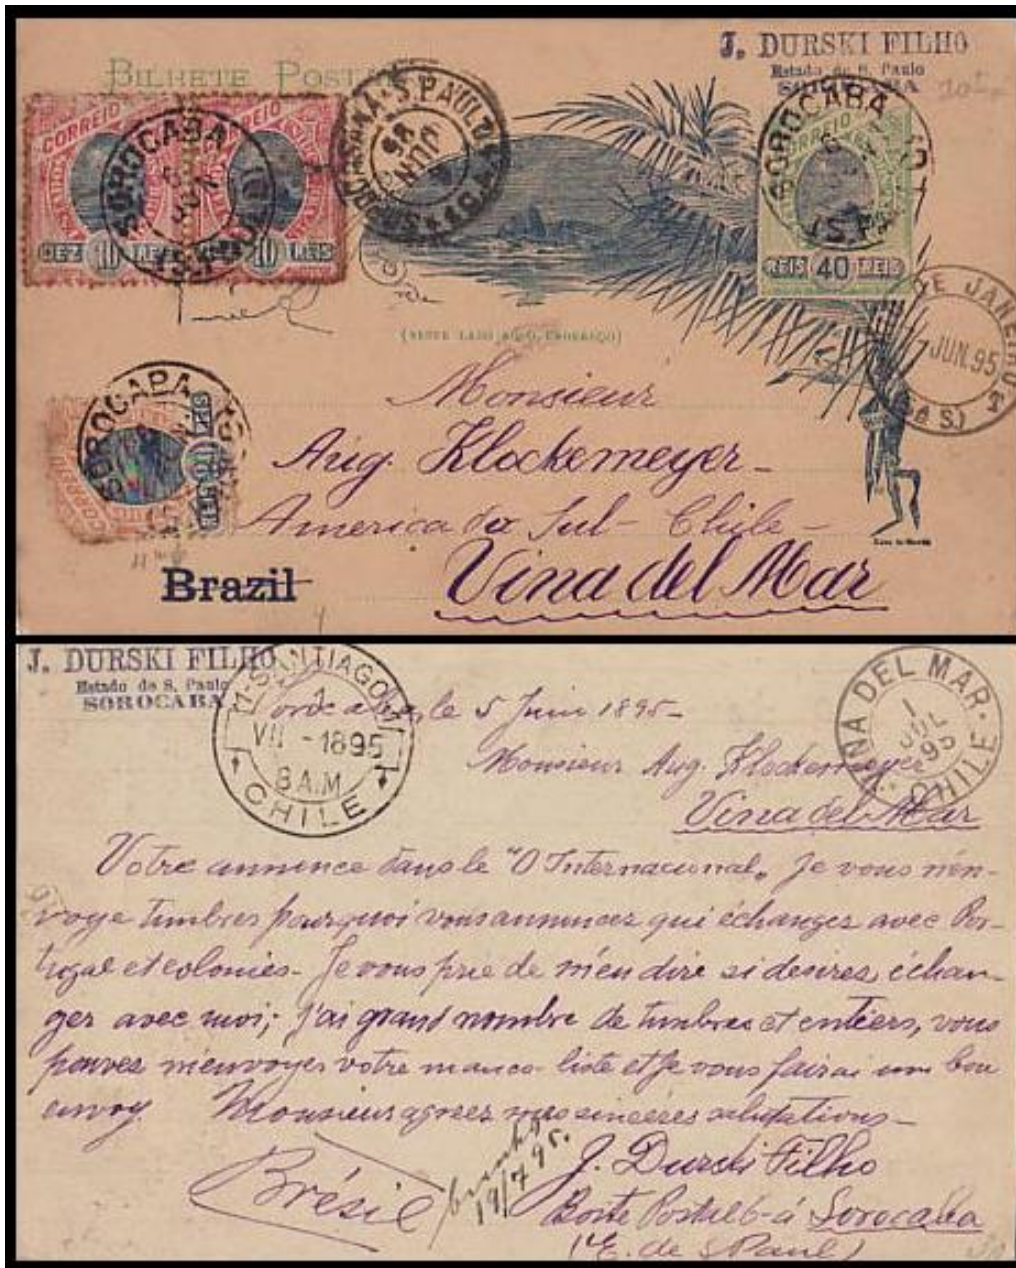 J. DURSKI FILHO
Estado de S. Paulo
SOROCABA
BILHETE POSTAL
CORREIO
CORREIO
DEZ 10 REIS
10 REIS
SOROCABA
(S. PAULO)
S. PAULO
JUN
95
SOROCABA
(S. PAULO)
CORREIO
REIS 40 REIS
DE JANEIRO
7 JUN. 95
(NESTE LADO SÓ O ENDEREÇO)
Monsieur
Aug. Klockemeyer-
America do Sul- Chile-
Vina del Mar
SOROCABA
CORREIO
REIS
Brazil
J. DURSKI FILHO
Estado de S. Paulo
SOROCABA
SANTIAGO
1
VII - 1895
8 A.M
CHILE
VINA DEL MAR
1
JUL
95
CHILE
Sorocaba, le 5 Juin 1895-
Monsieur Aug. Klockemeyer
Vina del Mar
Votre annonce dans le "O Internacional" je vous n'en-
voye timbres pourquoi vous annoncez qui échanges avec Por-
tugal et colonies- Je vous prie de m'en dire si desires échan-
ger avec moi; j'ai grand nombre de timbres et entiers, vous
pouves m'envoyer votre manco-liste et je vous fairai um bon
envoy. Monsieur agreez mes sincéres salutations-
J. Durski Filho
Boite Postal 6- à Sorocaba
(E. de S. Paul)
Brésil
19/7 95.